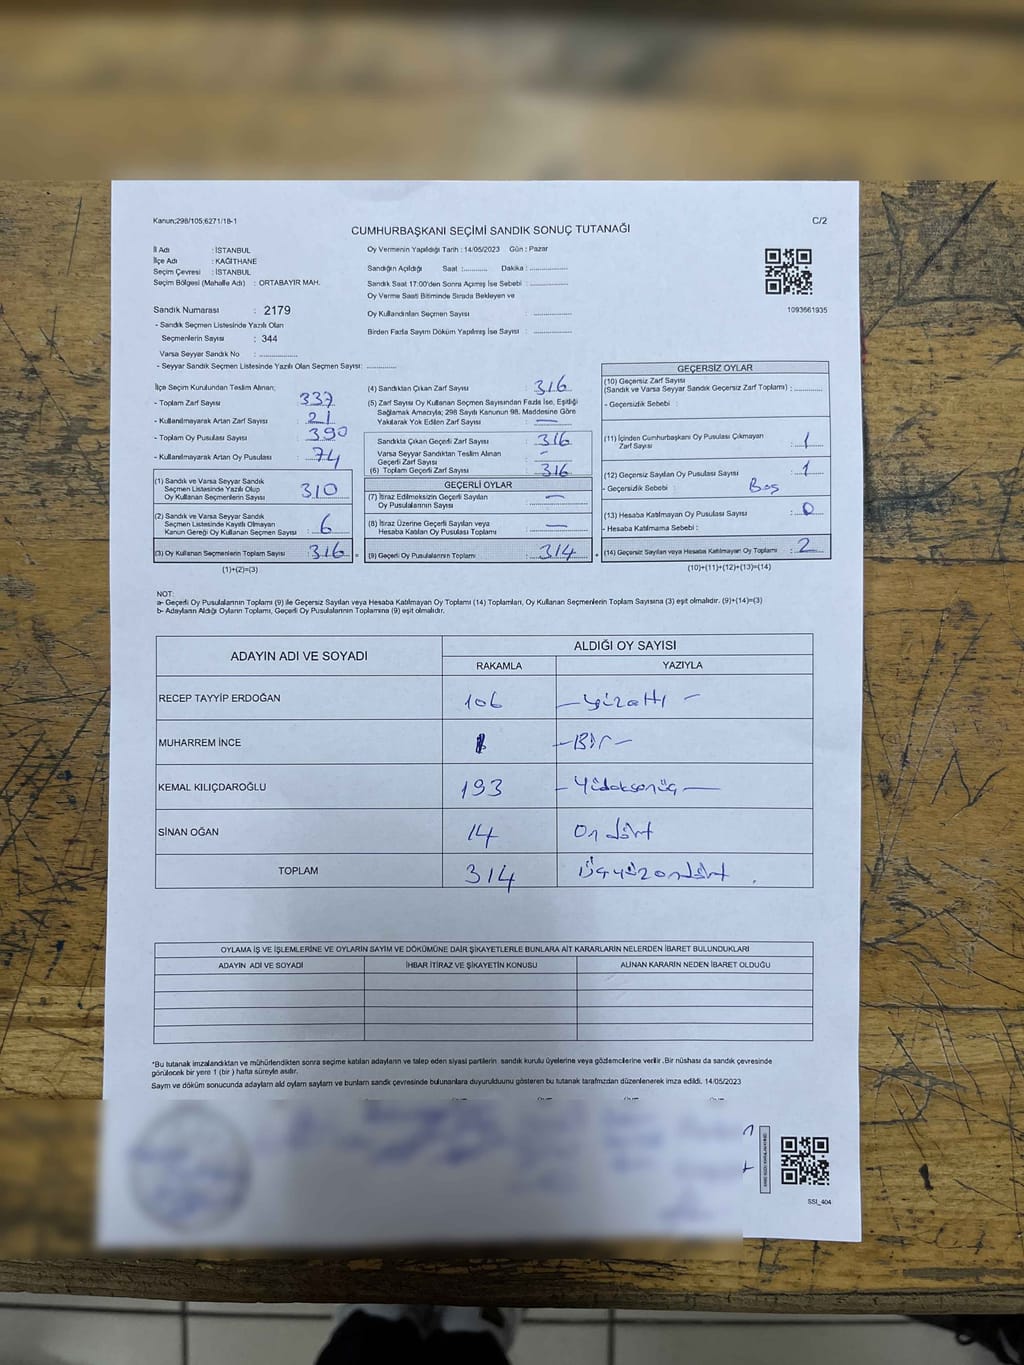 Kanun;298/105;6271/18-1
C/2
CUMHURBAŞKANI SEÇİMİ SANDIK SONUÇ TUTANAĞI
İl Adı : İSTANBUL
İlçe Adı : KAĞITHANE
Seçim Çevresi : İSTANBUL
Seçim Bölgesi (Mahalle Adı) : ORTABAYIR MAH.
Sandık Numarası : 2179
- Sandık Seçmen Listesinde Yazılı Olan
Seçmenlerin Sayısı : 344
Varsa Seyyar Sandık No : ..............
- Seyyar Sandık Seçmen Listesinde Yazılı Olan Seçmen Sayısı: ............
Oy Vermenin Yapıldığı Tarih : 14/05/2023 Gün : Pazar
Sandığın Açıldığı Saat :........... Dakika : ..................
Sandık Saat 17:00'den Sonra Açılmış İse Sebebi : ..................
Oy Verme Saati Bitiminde Sırada Bekleyen ve
Oy Kullandırılan Seçmen Sayısı : ..................
Birden Fazla Sayım Döküm Yapılmış İse Sayısı : ..................
1093661935
İlçe Seçim Kurulundan Teslim Alınan;
- Toplam Zarf Sayısı : 337
- Kullanılmayarak Artan Zarf Sayısı : 21
- Toplam Oy Pusulası Sayısı : 390
- Kullanılmayarak Artan Oy Pusulası : 74
(1) Sandık ve Varsa Seyyar Sandık
Seçmen Listesinde Yazılı Olup
Oy Kullanan Seçmenlerin Sayısı : 310
(2) Sandık ve Varsa Seyyar Sandık
Seçmen Listesinde Kayıtlı Olmayan
Kanun Gereği Oy Kullanan Seçmen Sayısı : 6
(3) Oy Kullanan Seçmenlerin Toplam Sayısı : 316 =
(1)+(2)=(3)
(4) Sandıktan Çıkan Zarf Sayısı : 316
(5) Zarf Sayısı Oy Kullanan Seçmen Sayısından Fazla İse, Eşitliği
Sağlamak Amacıyla; 298 Sayılı Kanunun 98. Maddesine Göre
Yakılarak Yok Edilen Zarf Sayısı : —
Sandıkta Çıkan Geçerli Zarf Sayısı : 316
Varsa Seyyar Sandıktan Teslim Alınan
Geçerli Zarf Sayısı : -
(6) Toplam Geçerli Zarf Sayısı : 316
GEÇERLİ OYLAR
(7) İtiraz Edilmeksizin Geçerli Sayılan
Oy Pusulalarının Sayısı : —
(8) İtiraz Üzerine Geçerli Sayılan veya
Hesaba Katılan Oy Pusulası Toplamı : —
(9) Geçerli Oy Pusulalarının Toplamı : 314 +
GEÇERSİZ OYLAR
(10) Geçersiz Zarf Sayısı
(Sandık ve Varsa Seyyar Sandık Geçersiz Zarf Toplamı) : ............
- Geçersizlik Sebebi :
(11) İçinden Cumhurbaşkanı Oy Pusulası Çıkmayan
Zarf Sayısı : 1
(12) Geçersiz Sayılan Oy Pusulası Sayısı : 1
- Geçersizlik Sebebi : Boş
(13) Hesaba Katılmayan Oy Pusulası Sayısı : 0
- Hesaba Katılmama Sebebi :
(14) Geçersiz Sayılan veya Hesaba Katılmayan Oy Toplamı : 2
(10)+(11)+(12)+(13)=(14)
NOT:
a- Geçerli Oy Pusulalarının Toplamı (9) ile Geçersiz Sayılan veya Hesaba Katılmayan Oy Toplamı (14) Toplamları, Oy Kullanan Seçmenlerin Toplam Sayısına (3) eşit olmalıdır. (9)+(14)=(3)
b- Adayların Aldığı Oyların Toplamı, Geçerli Oy Pusulalarının Toplamına (9) eşit olmalıdır.
ADAYIN ADI VE SOYADI
ALDIĞI OY SAYISI
RAKAMLA YAZIYLA
RECEP TAYYİP ERDOĞAN 106 — yüzaltı —
MUHARREM İNCE 1 — Bir —
KEMAL KILIÇDAROĞLU 193
SİNAN OĞAN 14 On dört
TOPLAM 314 Üçyüzondört .
OYLAMA İŞ VE İŞLEMLERİNE VE OYLARIN SAYIM VE DÖKÜMÜNE DAİR ŞİKAYETLERLE BUNLARA AİT KARARLARIN NELERDEN İBARET BULUNDUKLARI
ADAYIN ADI VE SOYADI İHBAR İTİRAZ VE ŞİKAYETİN KONUSU ALINAN KARARIN NEDEN İBARET OLDUĞU
*Bu tutanak imzalandıktan ve mühürlendikten sonra seçime katılan adayların ve talep eden siyasi partilerin, sandık kurulu üyelerine veya gözlemcilerine verilir. Bir nüshası da sandık çevresinde
görülecek bir yere 1 (bir ) hafta süreyle asılır.
Sayım ve döküm sonucunda adayların ald oyların sayların ve bunların sandık çevresinde bulunanlara duyurulduunu gösteren bu tutanak tarafımızdan düzenlenerek imza edildi. 14/05/2023
SSI_404